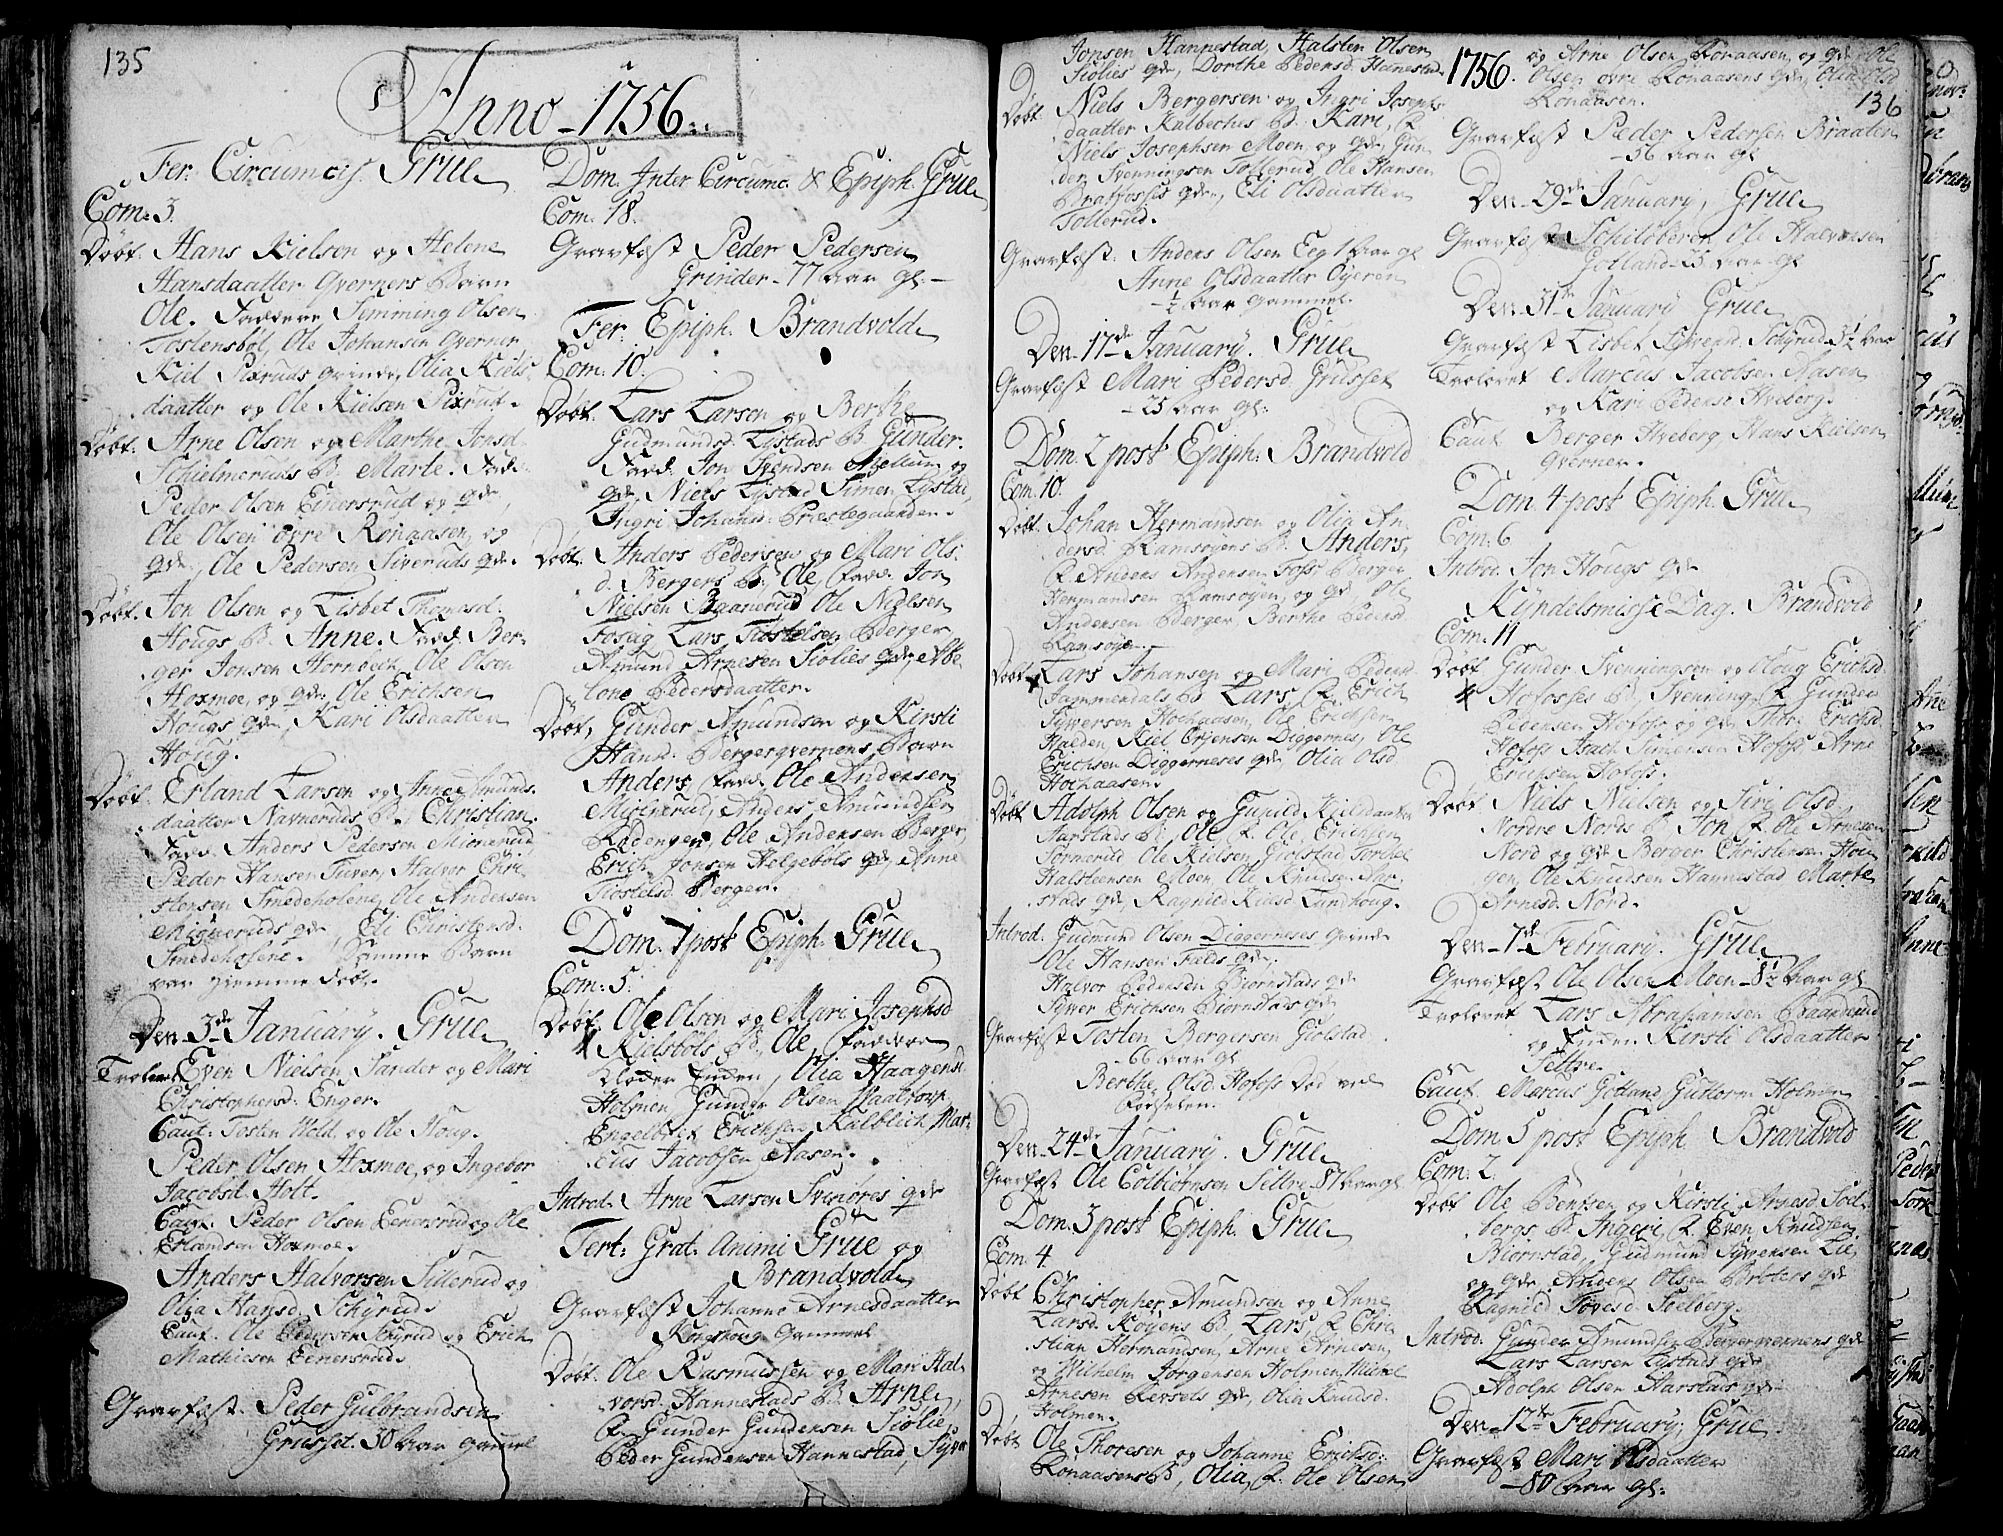 135
Anno 1756.
Fer: Circumcis. Grue
Com: 3.
Döbt. Hans Kielsen og Helene
Hansdaatter Qverners Barn
Ole. Faddere Simming Olsen
Tostensböl, Ole Johansen Qvernen
Kiel Pixruds qvinde, Olia Kiels
daatter og Ole Kielsen Pixrud.
Döbt: Arne Olsen og Marthe Jonsd.
Schielmeruds B. Marte. Fadd:
Peder Olsen Einersrud og qde,
Ole Olsen övre Rönaasen, og
qde, Ole Pedersen Siveruds qde.
Döbt. Jon Olsen og Lisbet Thomasd.
Hougs B. Anne. Fadd. Ber-
ger Jonsen Hornbech, Ole Olsen
Hoxmoe, og qde, Ole Erichsen
Hougs qde, Kari Olsdaatter
Houg.
Döbt. Erland Larsen og Anne Amunds-
daatter Navneruds B. Christian.
Fadd. Anders Pedersen Mionerud
Peder Hansen Tuver, Halvor Chri-
stensen Smedeholene, Ole Andersen
Mioneruds qde, Eli Christensd.
Smedeholene. Samme Barn
var hiemme döbt.
Den 3de January. Grue
Trolovet Even Nielsen Sander og Mari
Christophersd: Enger.
Caut: Tosten Wold, og Ole Houg.
Peder Olsen Hoxmoe, og Ingebor
Jacobsd. Holt.
Caut. Peder Olsen Einersrud og Ole
Erlandsen Hoxmoe.
Anders Halvorsen Sillerud og
Olia Hansd. Schyrud.
Caut. Ole Pedersen Schyrud og Erich
Mathiesen Einersrud.
Gravfæst. Peder Gulbrandsen
Grusset. 30 Aar gammel
Dom. Inter Circumc. & Epiph. Grue
Com. 18.
Gravfæst Peder Pedersen
Grinder - 77 aar gl. -
Fer: Epiph. Brandvold
Com: 10.
Döbt. Lars Larsen og Berthe
Gudmundsd. Lystads B. Gunder.
Fadd. Jon Svendsen Mellum og
qde, Niels Lystad Simen Lystad,
Ingri Johansd. Præstegaarden.
Döbt. Anders Pedersen og Mari Ols-
d. Bergers B. Ole, Fadd. Jon
Nielsen Baanerud Ole Nielsen
Fosag Lars Tiostelsen Berger
Amund Arnesen Siolies qde, Abe
lone Pedersdaatter.
Döbt, Gunder Amundsen og Kirsti
Hansd. Bergerqvernens Barn
Anders, Fadd. Ole Andersen
Mionerud, Anders Amundsen
Rödengen, Ole Andersen Berger,
Erich Jonsen Holgebøls qde, Anne
Tiostelsd Berger.
Dom. 1 post Epiph. Grue
Com: 5.
Döbt. Ole Olsen og Mari Josephsd
Kielsböls B. Ole, Faddere
Kloder Enden, Olia Haagensd
Holmen Gunder Olsen
Engelbret Erichsen Kalblich Mar-
cus Jacobsen Aasen.
Introd. Arne Larsen Svenöres qde
Tert: Grat: Animi Grue og
Brandvold
Gravfæst Johanne Arnesdaatter
Kongshoug Gammel
Döbt. Ole Rasmussen og Mari Hal-
vorsd. Hannestads B. Arne,
F. Gunder Gundersen Siolie,
Peder Gundersen Hannestad, Siver
Jonsen Hannestad, Halsten Olsen
Siolies qde, Dorthe Pedersd. Hanestad
Döbt Niels Bergersen og Ingri Josephs-
daatter Kalbechs B. Kari, F.
Niels Josephsen Moen, og qde, Gun
der Svenningsen Tollerud, Ole Hansen
Bratfosses qde, Eli Olsdaatter
Tollerud.
Gravfæst: Anders Olsen Eeg 1 Aar gl
Anne Olsdaatter Oyeren
- ½ Aar gammel.
Den 17de January. Grue
Gravfæst Mari Pedersd. Grusset
- 25 Aar gl:
Dom. 2 post Epiph: Brandvold
Com: 10.
Döbt. Johan Hermandsen og Olia An-
dersd. Ramsöyens B. Anders,
F. Anders Andersen Foss, Berger
Hermandsen Ramsöyen, og qd. Ole
Andersen Berger, Berthe Pedersd
Ramsöye.
Döbt. Lars Johansen og Mari Pedersd
Jammerdals B. Lars, F. Erich
Syversen Hochaasen, Ole Erichsen
Halden, Kiel Orjensen Diggernes, Ole
Erichsen Diggerneses qde Olia Olsd.
Hochaasen.
Döbt Adolph Olsen og Gunild Kieldsdaatter
Aarstads B. Ole F. Ole Erichsen
Tormerud Ole Kielsen Giölstad Torchel
Halsteensen Moen Ole Knudsen Aar-
stads qde, Ragnild Kielsd Lundhoug.
Introd. Gudmund Olsen Diggerneses qvinde
Ole Hansen Falds qde.
Halvor Pedersen Biörnstads qde
Syver Erichsen Biörnstads qde
Gravfæst Tosten Bergersen Giölstad
- 66 Aar gl
Berthe, Olsd. Hofoss död ved
födselen.
Den 24de January. Grue
Gravfæst Ole Colbiörnsen Seltre 87 Aar gl
Dom. 3 post Epiph. Grue
Com. 4.
Döbt Christopher Amundsen og Anne
Larsd. Koyens B. Lars F. Chri-
stian Hermandsen, Arne Arnesen
og Wilhelm Jörgensen Holmen, Michel
Arnesen Revsets qde, Olia Knudsd
Holmen.
Döbt Ole Thoresen og Johanne Erichsd:
Rönaasens B, Olia, F. Ole Olsen
1756.
136
og Arne Olsen Rönaasen, og qde, Ole
Olsen övre Rönaasens qde, Olia Olsd
Rönaasen.
Gravfæst Peder Pedersen Braaten
- 56 Aar gl
Den 29de January, Grue
Gravfæst Schildberer Ole Halvorsen
Gotland - 25 Aar gl
Den 31te January Grue
Gravfæst Lisbet Syversd. Schyrud. 3½ Aar
Troloret Marcus Jacobsen Aasen
og Kari Pedersd Hveberg.
Caut Berger Hveberg Hans Kielsen
Qvernen.
Dom. 4 post Epiph. Grue
Com: 6
Introd. Jon Hougs qde
Kyndelsmisse Dag. Brandvold
Com: 11
Döbt Gunder Svenningsen og Houg Erichsd
Hofosses B. Svenning, F. Gunder
Pedersen Hofoss og qde Thor: Erichsd
Hofoss Isach Simensen Hofoss Arne
Erichsen Hofoss.
Döbt Niels Nielsen og Siri Olsd.
Nordre Nords B. Jon F. Ole Arnesen
Nord og qde Berger Christensen Hou
gen, Ole Knudsen Hannestad Marte
Arnesd. Nord.
Den 7de February. Grue
Gravfæst Ole Olsen Moen - 8½ Aar gl
Troloret Lars Abrahamsen Baaserud
og Enken Kirsti Olsdaatter
Seltre.
Caut. Marcus Gotland Guttorm Holmen
Dom. 5 post Epiph. Brandvold
Com: 2.
Döbt Ole Bentsen og Kirsti Arnesd. Soel-
bergs B. Ingeri, F. Even Knudsen
Biörnstad, Gudmund Syversen Lie
og qde Anders Olsen Bröters qde
Ragnild Tovesd. Soelberg.
Introd. Gunder Amundsen Bergerqvernens qde
Lars Larsen Lystads qde
Adolph Olsen Aarstads qde
Den 12te February, Grue
Gravfæst Mari Olsdaatter
- 80 Aar gl.